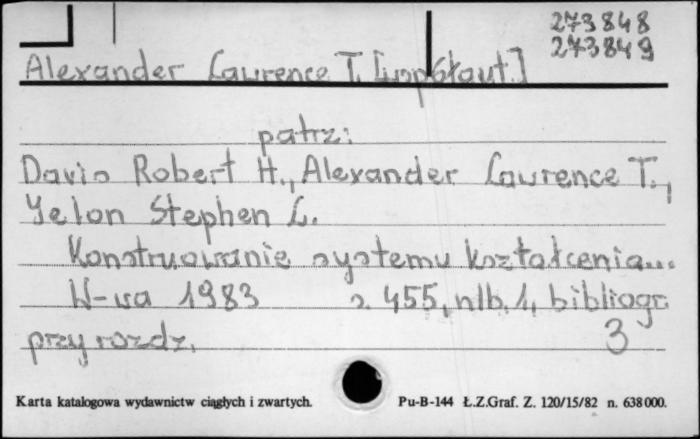 273848
273849
Alexander Lawrence T. [współaut.]
patrz:
Davis Robert H., Alexander Lawrence T.,
Yelon Stephen L.
Konstruowanie systemu kształcenia...
W-wa 1983 s. 455, nlb. 1, bibliogr.
przy rozdz. 3
Karta katalogowa wydawnictw ciągłych i zwartych. Pu-B-144 Ł.Z.Graf. Z. 120/15/82 n. 638 000.